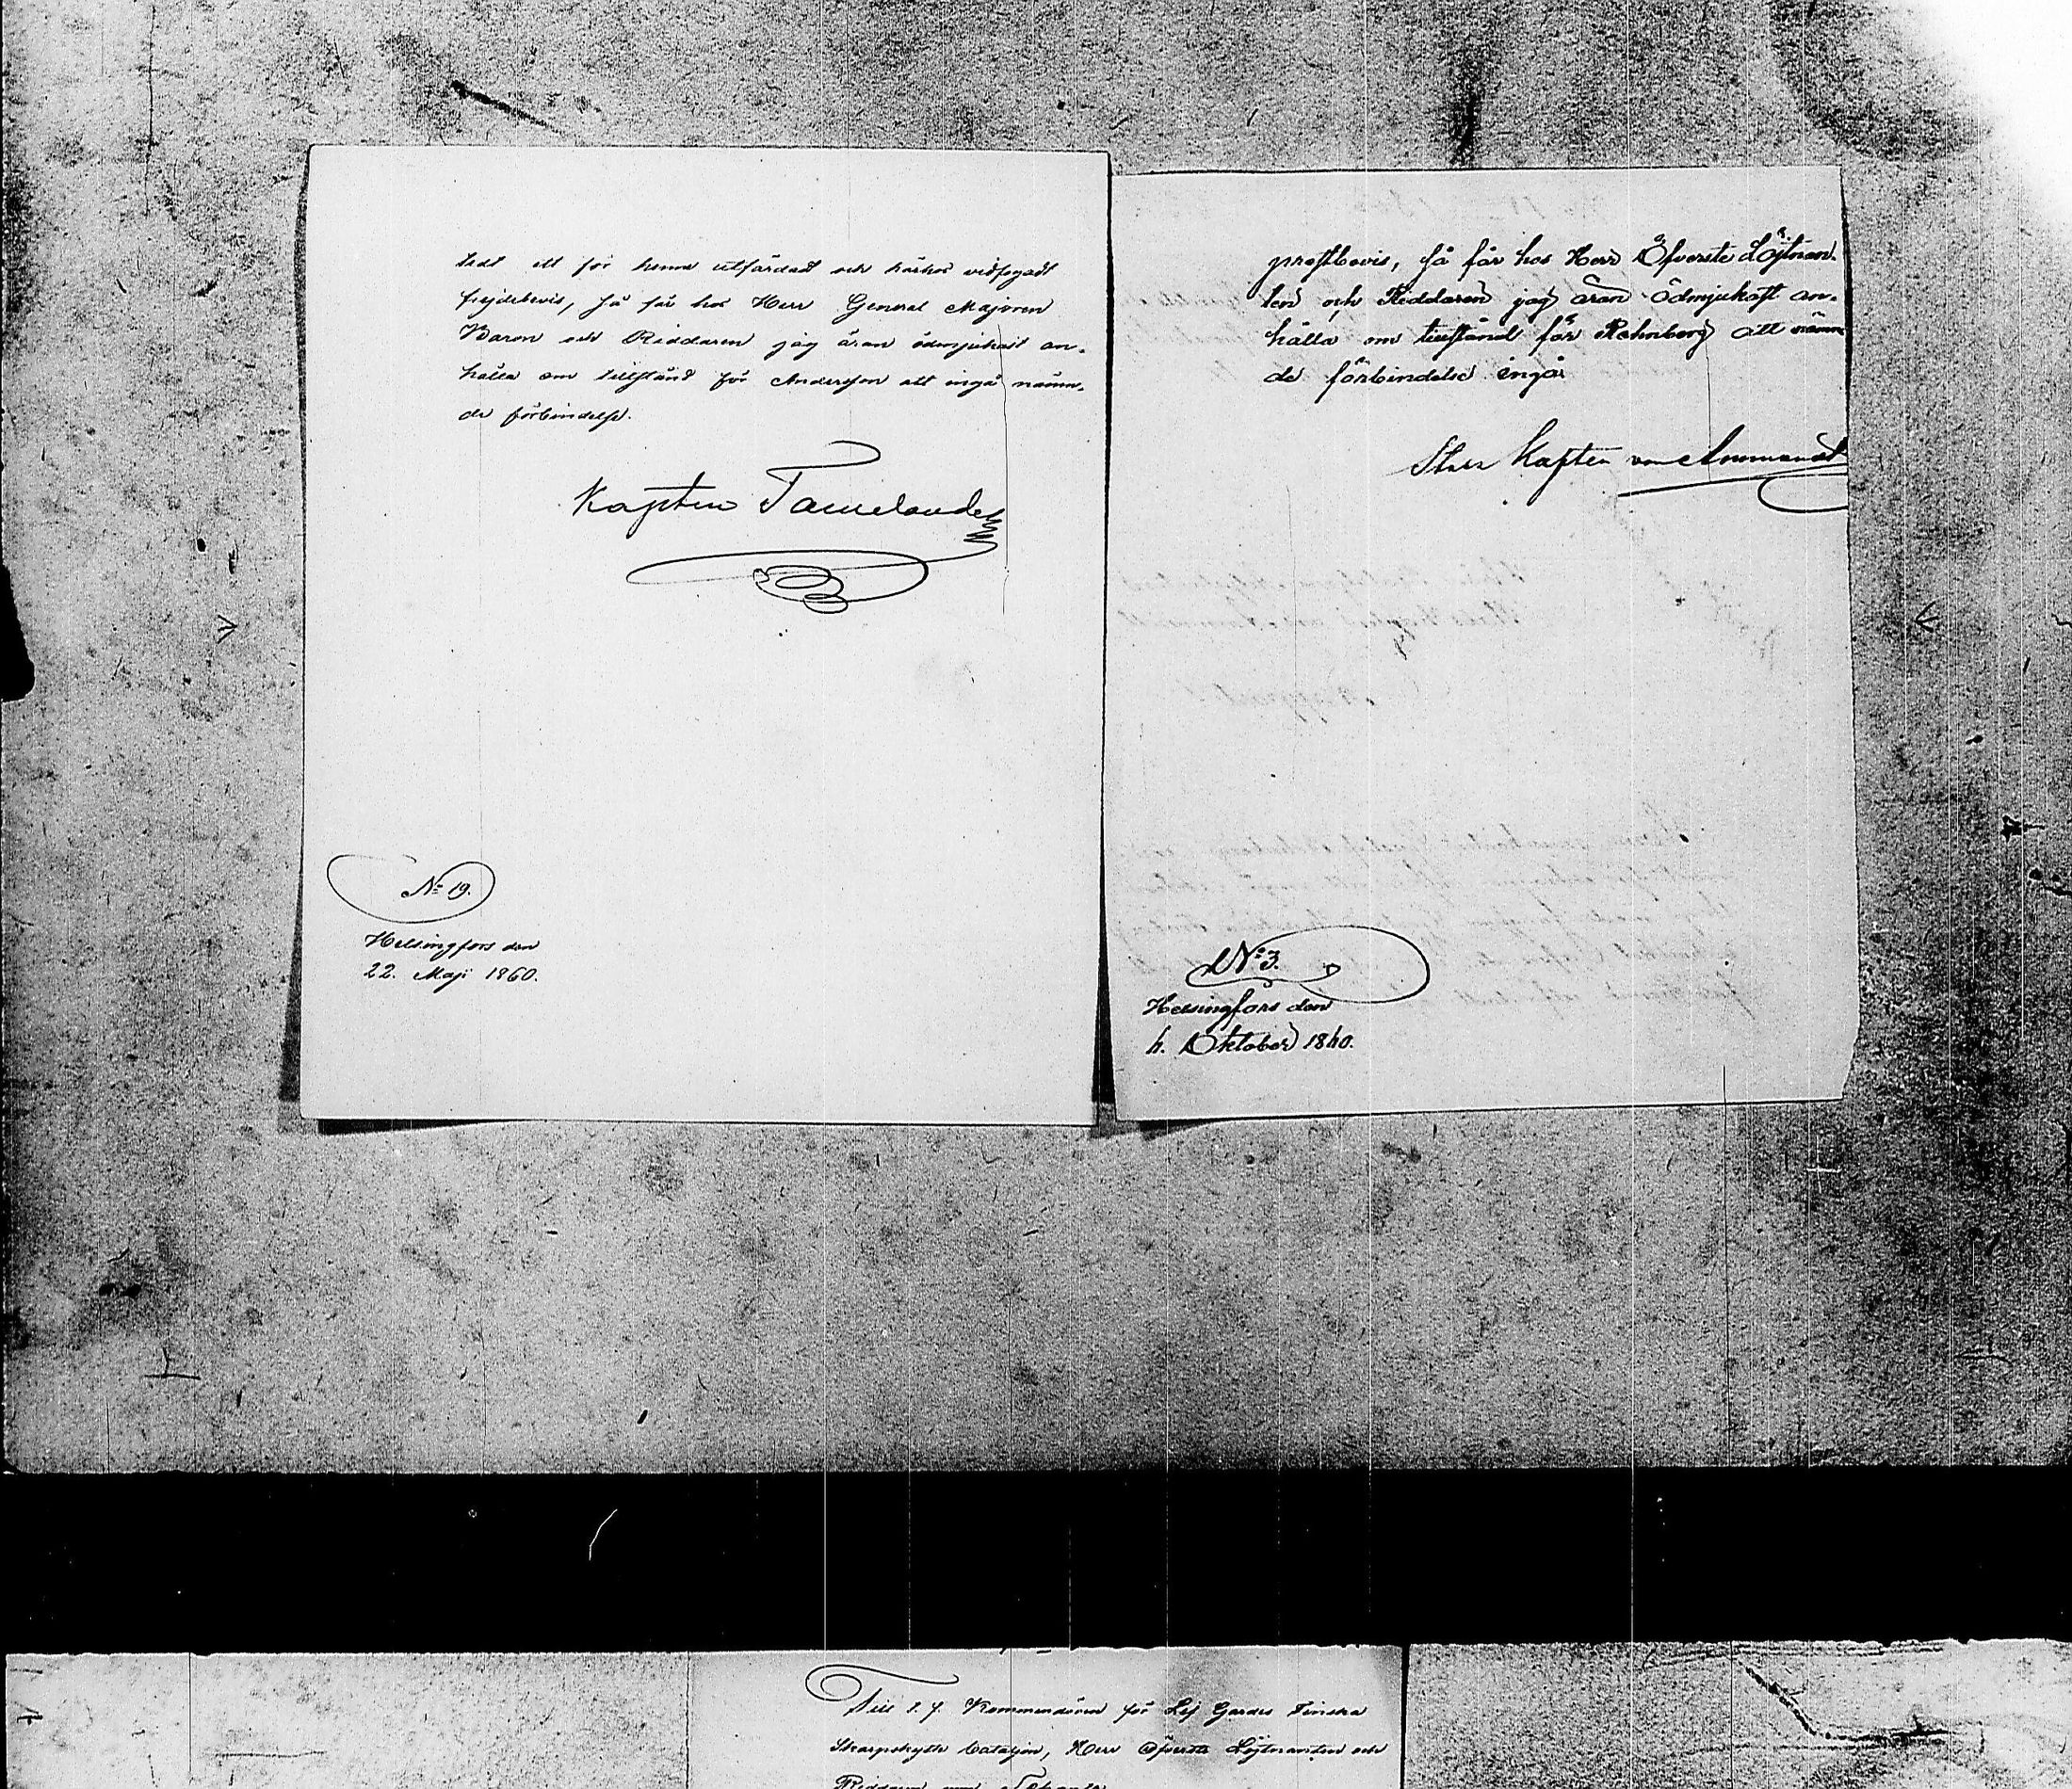 tedt ett för henne utfärdadt och härhos vidfogadt
frejdebevis, så får hos Herr General Majoren
Baron och Riddaren jag äran ödmjukast an-
hålla om tillstånd för Andersson att ingå nämn-
de förbindelse.
Kapten Tamelander
№ 19.
Helsingfors den
22. Maji 1860.
prestbevis, så får hos Herr Öfverste Löjtnan-
ten och Riddaren jag äran ödmjukast an-
hålla om tillstånd för Rehnberg att nämn-
de förbindelse ingå
Stabs Kapten von
№ 3.
Helsingfors den
Oktober
Till t. f. Kommendören för Lif Gardes Finska
Skarpskytte bataljon, Herr Öfverste Löjtnanten och
Riddaren von